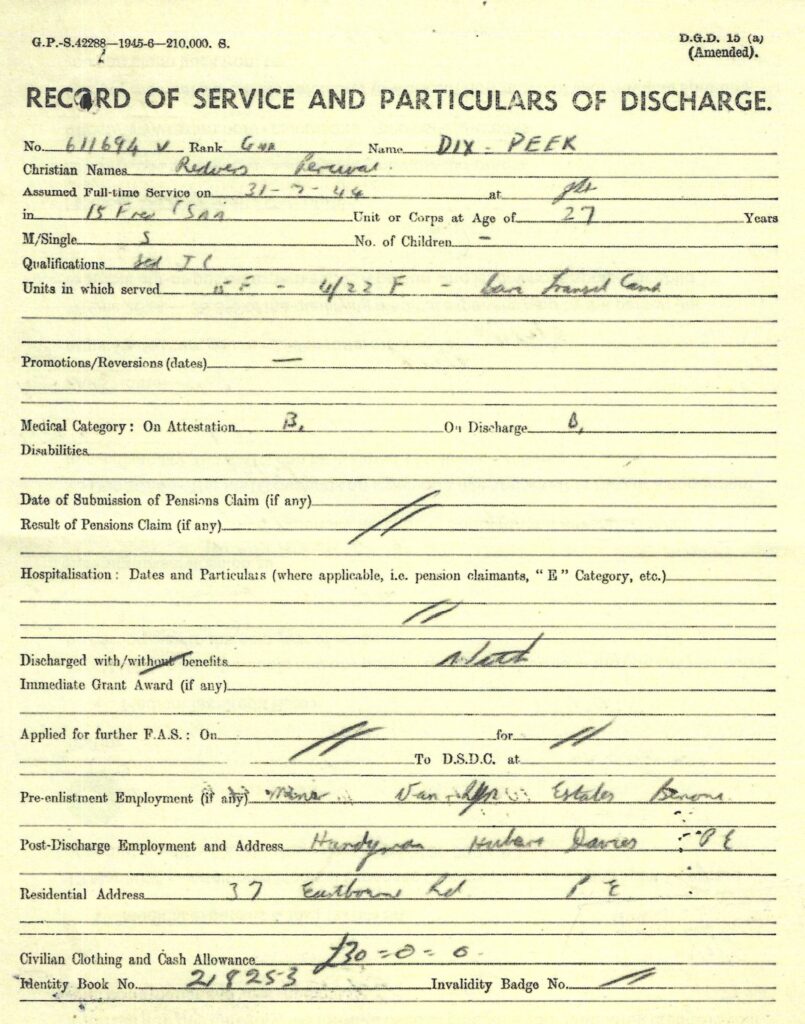 G.P.-S.42288—1945-6—210,000. S.
D.G.D. 15 (a)
(Amended).
RECORD OF SERVICE AND PARTICULARS OF DISCHARGE.
No. 611694 V Rank Gnr Name DIX - PEEK
Christian Names Redvers Percival.
Assumed Full-time Service on 31-7-44 at
in 15 Unit or Corps at Age of 27 Years
M/Single S No. of Children —
Qualifications J C
Units in which served 15 F - 4/22 F - Transit Camp
Promotions/Reversions (dates) —
Medical Category: On Attestation B, On Discharge
Disabilities
Date of Submission of Pensions Claim (if any)
Result of Pensions Claim (if any) //
Hospitalisation: Dates and Particulars (where applicable, i.e. pension claimants, "E" Category, etc.)
//
Discharged with/without benefits With
Immediate Grant Award (if any)
Applied for further F.A.S.: On // for //
To D.S.D.C. at
Pre-enlistment Employment (if any) Miner Van Estates Benoni
Post-Discharge Employment and Address Handyman Hubert Davies P E
Residential Address 37 Eastbourne Rd P E
Civilian Clothing and Cash Allowance £30=0=0.
Identity Book No. 218253 Invalidity Badge No. //